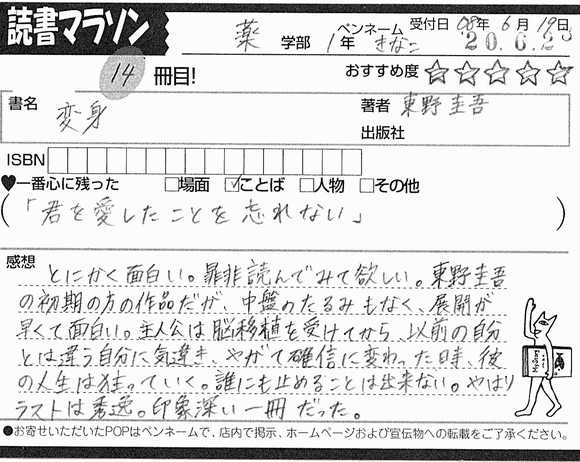 読書マラソン
薬 学部 1年 ペンネーム きなこ 受付日 08年 6月 19日
20.6.2
14 冊目!
おすすめ度 ☆☆☆☆☆
書名 変身
著者 東野圭吾
出版社
ISBN
♥一番心に残った □場面 ☑ことば □人物 □その他
(「君を愛したことを忘れない」)
感想
とにかく面白い。罪非読んでみて欲しい。東野圭吾
の初期の方の作品だが、中盤のたるみもなく、展開が
早くて面白い。主人公は脳移植を受けてから、以前の自分
とは違う自分に気違き、やがて確信に変わった時、彼
の人生は狂っていく。誰にも止めることは出来ない。やはり
ラストは秀逸。印象深い一冊だった。
●お寄せいただいたPOPはペンネームで、店内で掲示、ホームページおよび宣伝物への転載をご了承ください。